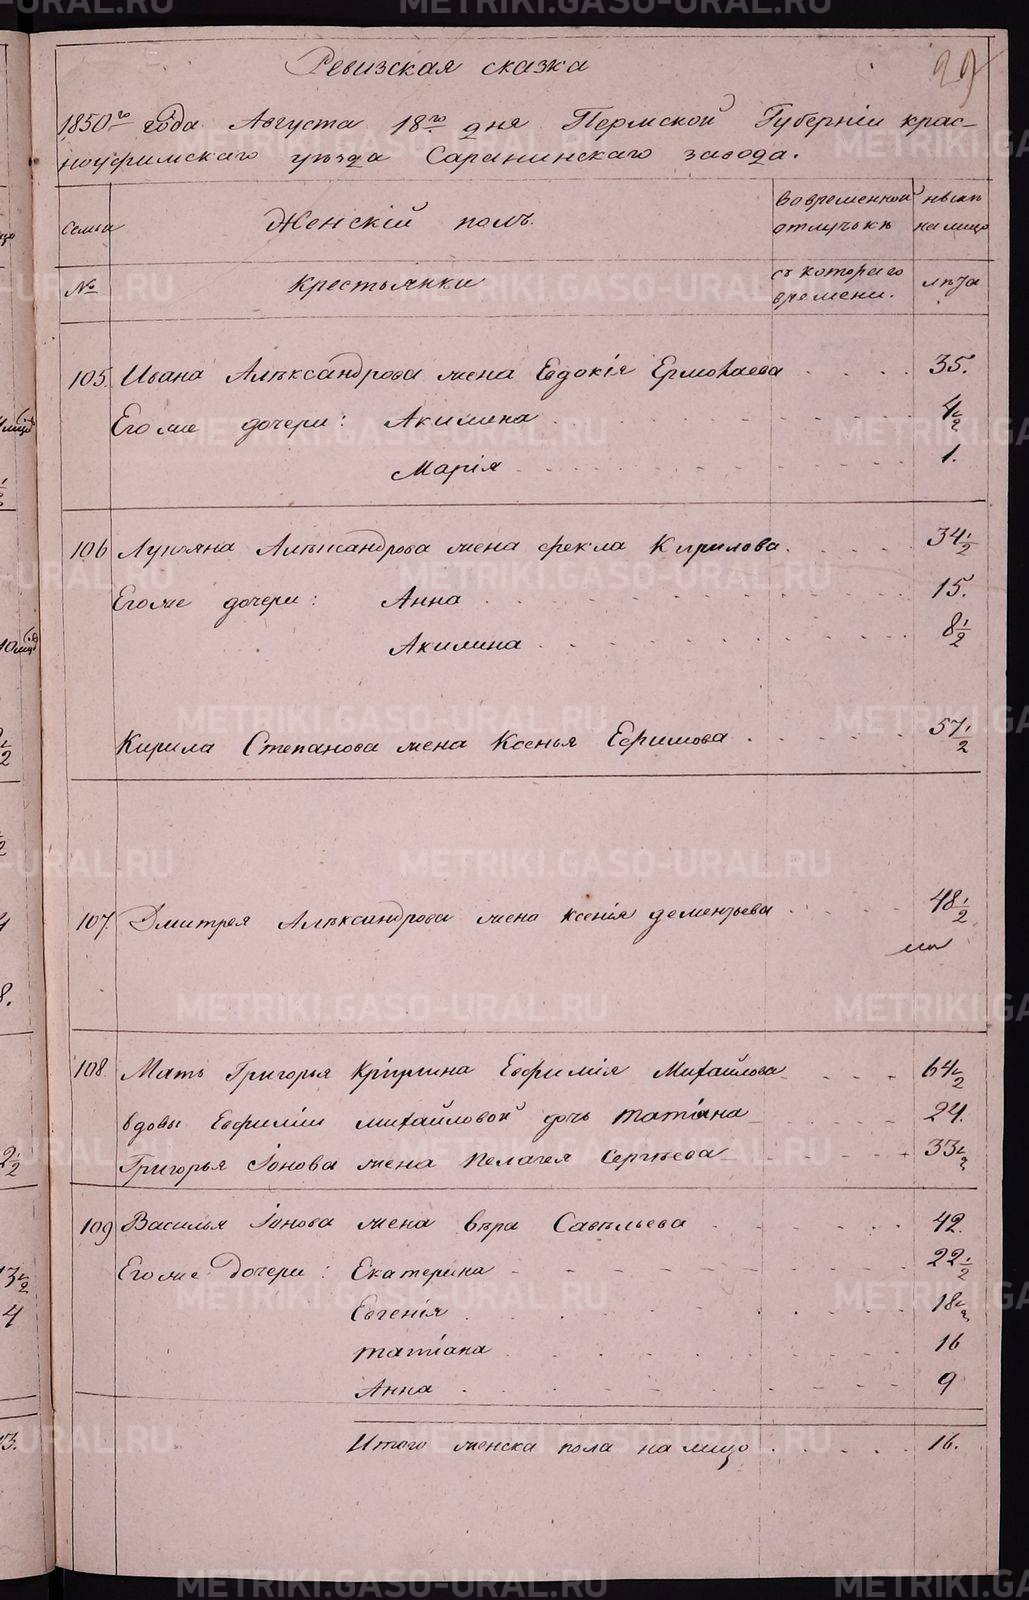 29
Ревизская сказка
1850го года Августа 18го дня Пермской Губерніи крас-
ноуфимскаго уѣзда Саранинскаго завода.
Семьи Женскій полъ. во временной отлучкѣ нынѣ на лицо
№ крестьянки съ котораго времени. лѣта
105. Ивана Алѣксандрова жена Евдокія Ермолаева 35.
Его же дочери: Акилина 4 1/2
Марія 1.
106 Лукьяна Алѣксандрова жена фекла Кирилова. 34 1/2
Его же дочери: Анна 15.
Акилина 8 1/2
Кирила Степанова жена Ксенья Ефимова 57 1/2
107. Дмитрея Алѣксандрова жена ксенія дементьева 48 1/2
108. Мать Григорья Евфимія Михайлова 64 1/2
вдовы Евфиміи михайловой дочь татіана 24.
Григорья Іонова жена пелагея сергѣева 33 1/2
109 Василья Іонова жена вѣра Савѣльева 42.
Его же Дочери: Екатерина 22 1/2
Евгенія 18 1/2
татіана 16
Анна 9
Итого женска пола на лицо 16.
METRIKI.GASO-URAL.RU